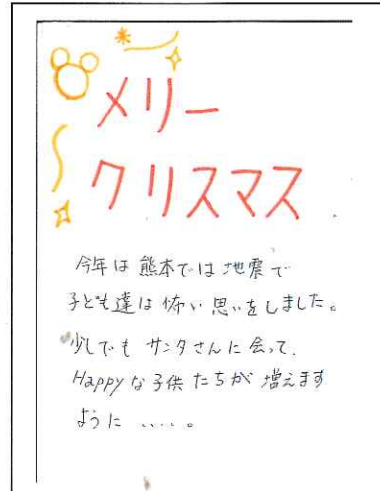 メリー
クリスマス
今年は熊本では地震で
子ども達は怖い思いをしました。
少しでもサンタさんに会って、
Happyな子供たちが増えます
ように ....。